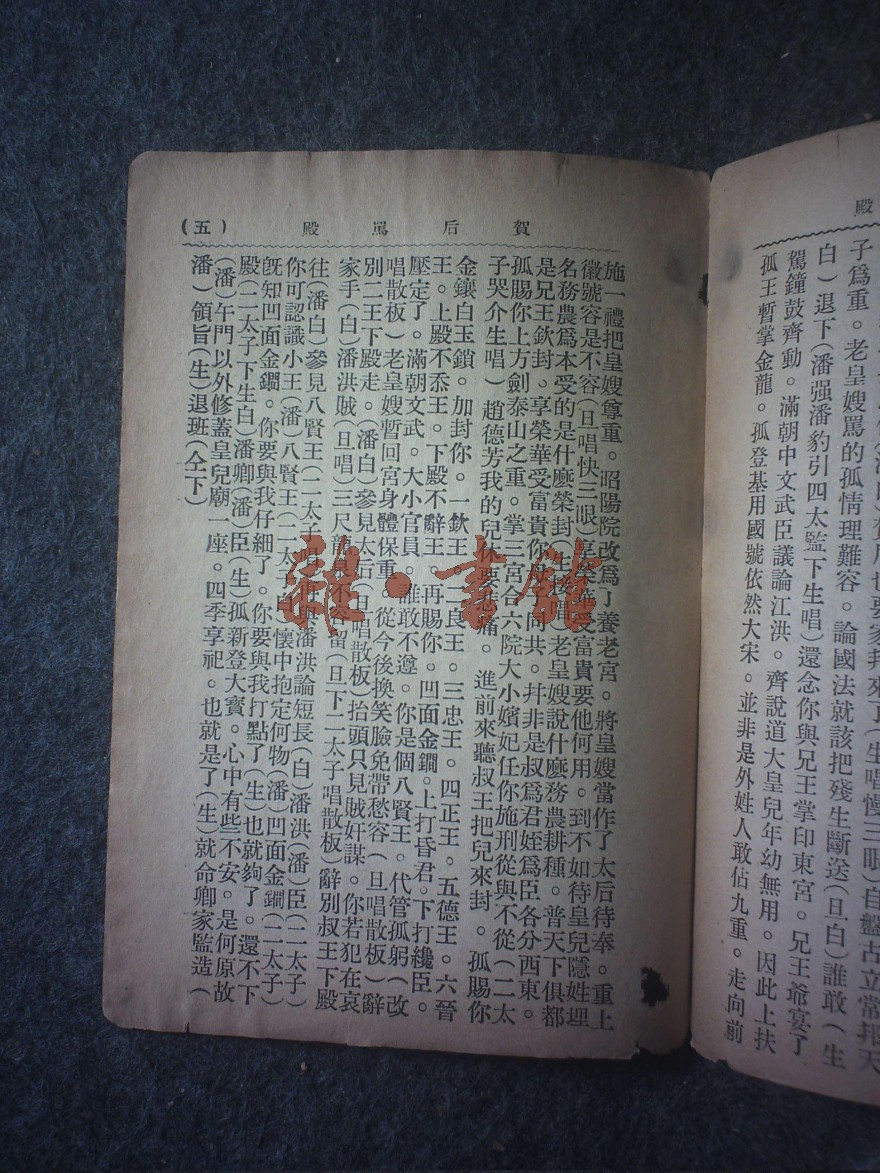 殿
也要家邦來了(生唱慢三眼)自盤古立常邦天
子爲重。老皇嫂罵的孤情理難容。論國法就該把殘生斷送(旦白)誰敢(生
白)退下(潘强潘豹引四太監下生唱)還念你與兄王掌印東宮。兄王爺宴了
駕鐘鼓齊動。滿朝中文武臣議論江洪。齊說道大皇兒年幼無用。因此上扶
孤王暫掌金龍。孤登基用國號依然大宋。並非是外姓人敢佔九重。走向前
賀后罵殿
(五)
施一禮把皇嫂尊重。昭陽院改爲了養老宮。將皇嫂當作了太后待奉。重上
徽號容是不容(旦唱快三眼)享榮華受富貴要他何用。到不如待皇兒隱姓埋
名務農爲本受的是什麽榮封(生接唱)老皇嫂說什麽務農耕種。普天下俱都
是兄王欽封。享榮華受富貴你母子同共。幷非是叔爲君姪爲臣各分西東。
孤賜你上方劍泰山之重。掌三宮合六院大小嬪妃任你施刑從與不從(二太
子哭介生唱)趙德芳我的兒休要悲痛。進前來聽叔王把兒來封。孤賜你
金鑲白玉鎖。加封你。一欽王。二良王。三忠王。四正王。五德王。六晉
王。上殿不忝王。下殿不辭王。再賜你。凹面金鐧。上打昏君。下打纔臣。
壓定了。滿朝文武。大小官員。誰敢不遵。你是個八賢王。代管孤躬(改
唱散板)老皇嫂暫回宮身體保重。從今後換笑臉免帶愁容(旦唱散板)辭
別二王下殿走。(潘白)參見太后(旦唱散板)抬頭只見賊奸謀。你若犯在哀
家手(白)潘洪賊(旦唱)三尺龍泉不容留(旦下二太子唱散板)辭別叔王下殿
往(潘白)參見八賢王(二太子唱)再與潘洪論短長(白)潘洪(潘)臣(二太子)
你可認識小王(潘)八賢王(二太子)懷中抱定何物(潘)凹面金鐧(二太子)
旣知凹面金鐧。你要與我仔細了。你要與我打點了(生)也就夠了。還不下
殿(二太子下生白)潘卿(潘)臣(生)孤新登大寳。心中有些不安。是何原故
(潘)午門以外修蓋皇兒廟一座。四季享祀。也就是了(生)就命卿家監造(
潘)領旨(生)退班(仝下)